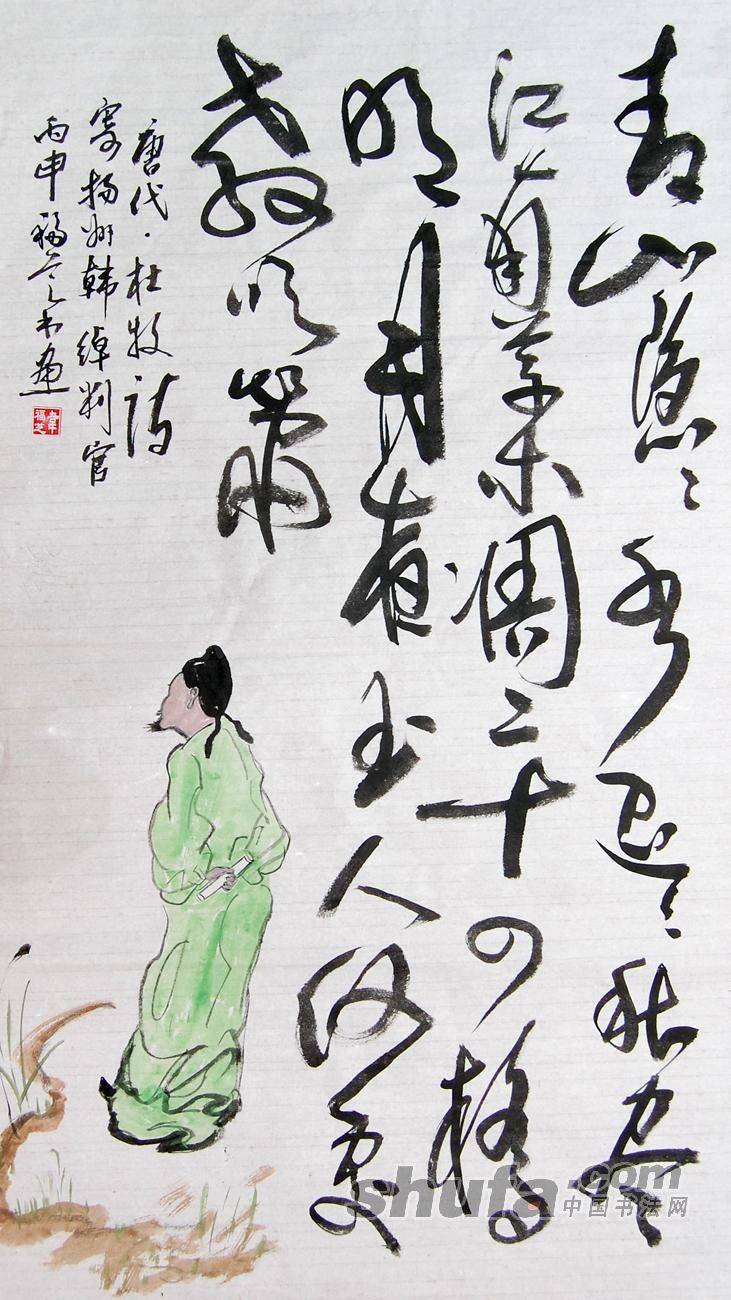 青山隐々水迢々秋尽
江南草木凋二十四桥
明月夜玉人何处
教吹箫
唐代·杜牧诗
寄扬州韩绰判官
丙申福芝书画
shufa.com
中国书法网